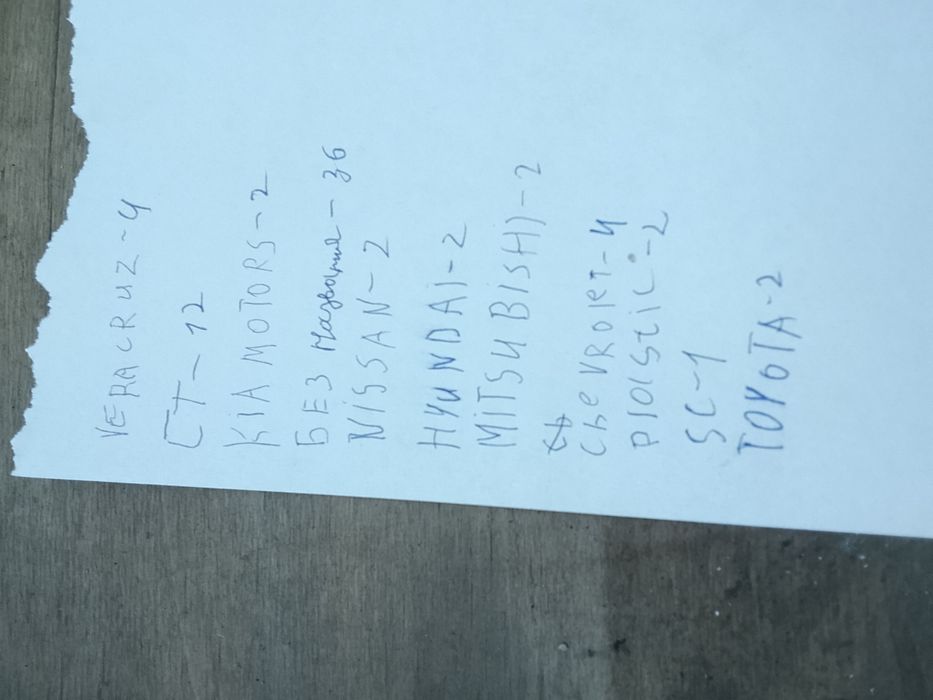 VERACRUZ-4
CT-12
KiA MOTORS-2
БЕЗ названия-36
NiSSAN-2
HYUNDAi-2
MiTSUBiSHi-2
Chevrolet-4
plastic-2
SC-1
TOYOTA-2